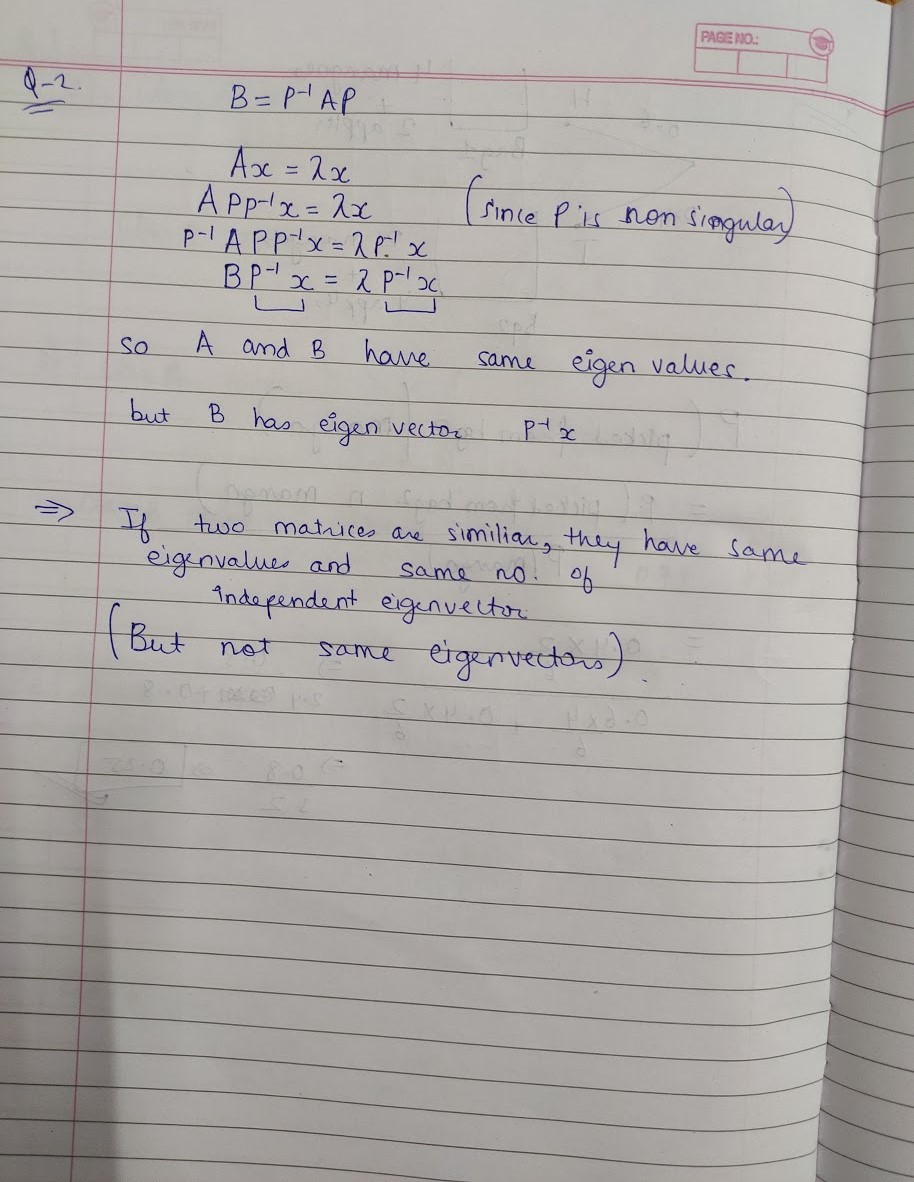 PAGE NO.:
Q-2.
B = P⁻¹ A P
Ax = λx
A P P⁻¹ x = λx (since P is non singular)
P⁻¹ A P P⁻¹ x = λ P⁻¹ x
B P⁻¹ x = λ P⁻¹ x
so A and B have same eigen values.
but B has eigen vector P⁻¹ x
⇒ If two matrices are similiar, they have same
eigenvalues and same no. of
independent eigenvector
(But not same eigenvectors).